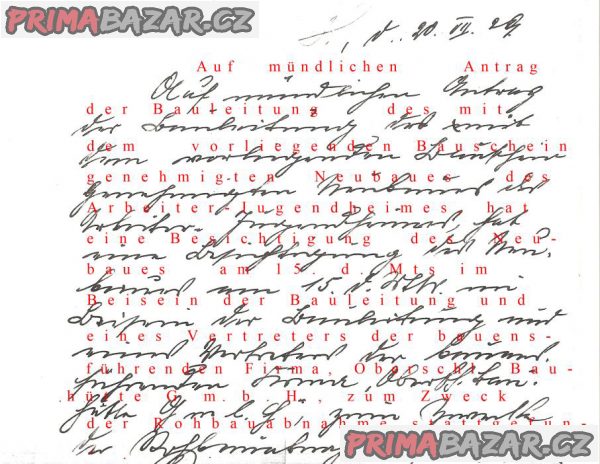 PRIMABAZAR.CZ
d. 20. IV. 29.
Auf mündlichen Antrag
Auf mündlichen Antrag
der Bauleitung des mit
der Bauleitung des mit
dem vorliegenden Bauschein
dem vorliegenden Bauschein
genehmig-ten Neubaues des
Genehmigten Neubaues des
Arbeiter Jugendheimes hat
Arbeiter-Jugendheimes, hat
eine Besichtigung des Neu-
eine Besichtigung des Neu-
baues am 15. d. Mts im
baues am 15. d. Mts. im
Beisein der Bauleitung und
Beisein der Bauleitung und
eines Vertreters der bauens-
eines Vertreters der bauens-
führenden Firma, Oberschl. Bau-
führenden Firma, Oberschl. Bau-
hütte G.m.b.H., zum Zweck
hütte G.m.b.H., zum Zwecke
der Rohbauabnahme stattgefun-
der Rohbauabnahme
PRIMABAZAR.CZ